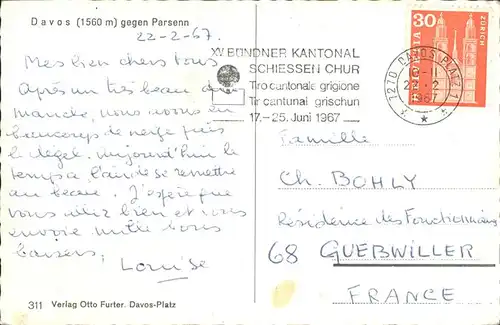 Davos (1560 m) gegen Parsenn
22-2-67.
Mes bien chers tous
Après un très beau di
manche, nous avons eu
beaucoup de neige puis
le dégel. Aujourd'hui le
temps a l'air de se remettre
au beau. J'espère que
vous allez bien et vous
envoie mille bons
baisers,
Louise
311 Verlag Otto Furter. Davos-Platz
XV BÜNDNER KANTONAL
SCHIESSEN CHUR
Tiro cantonale grigione
Tir cantunal grischun
17.-25. Juni 1967
7270 DAVOS PLATZ 1
-11
22.2
1967
30
HELVETIA
ZÜRICH
Famille
Ch. BOHLY
Résidence des Fonctionnaires
68 GUEBWILLER
FRANCE